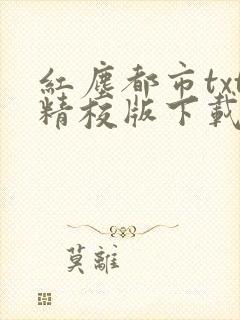 紅塵都市txt
精校版下載
莫離